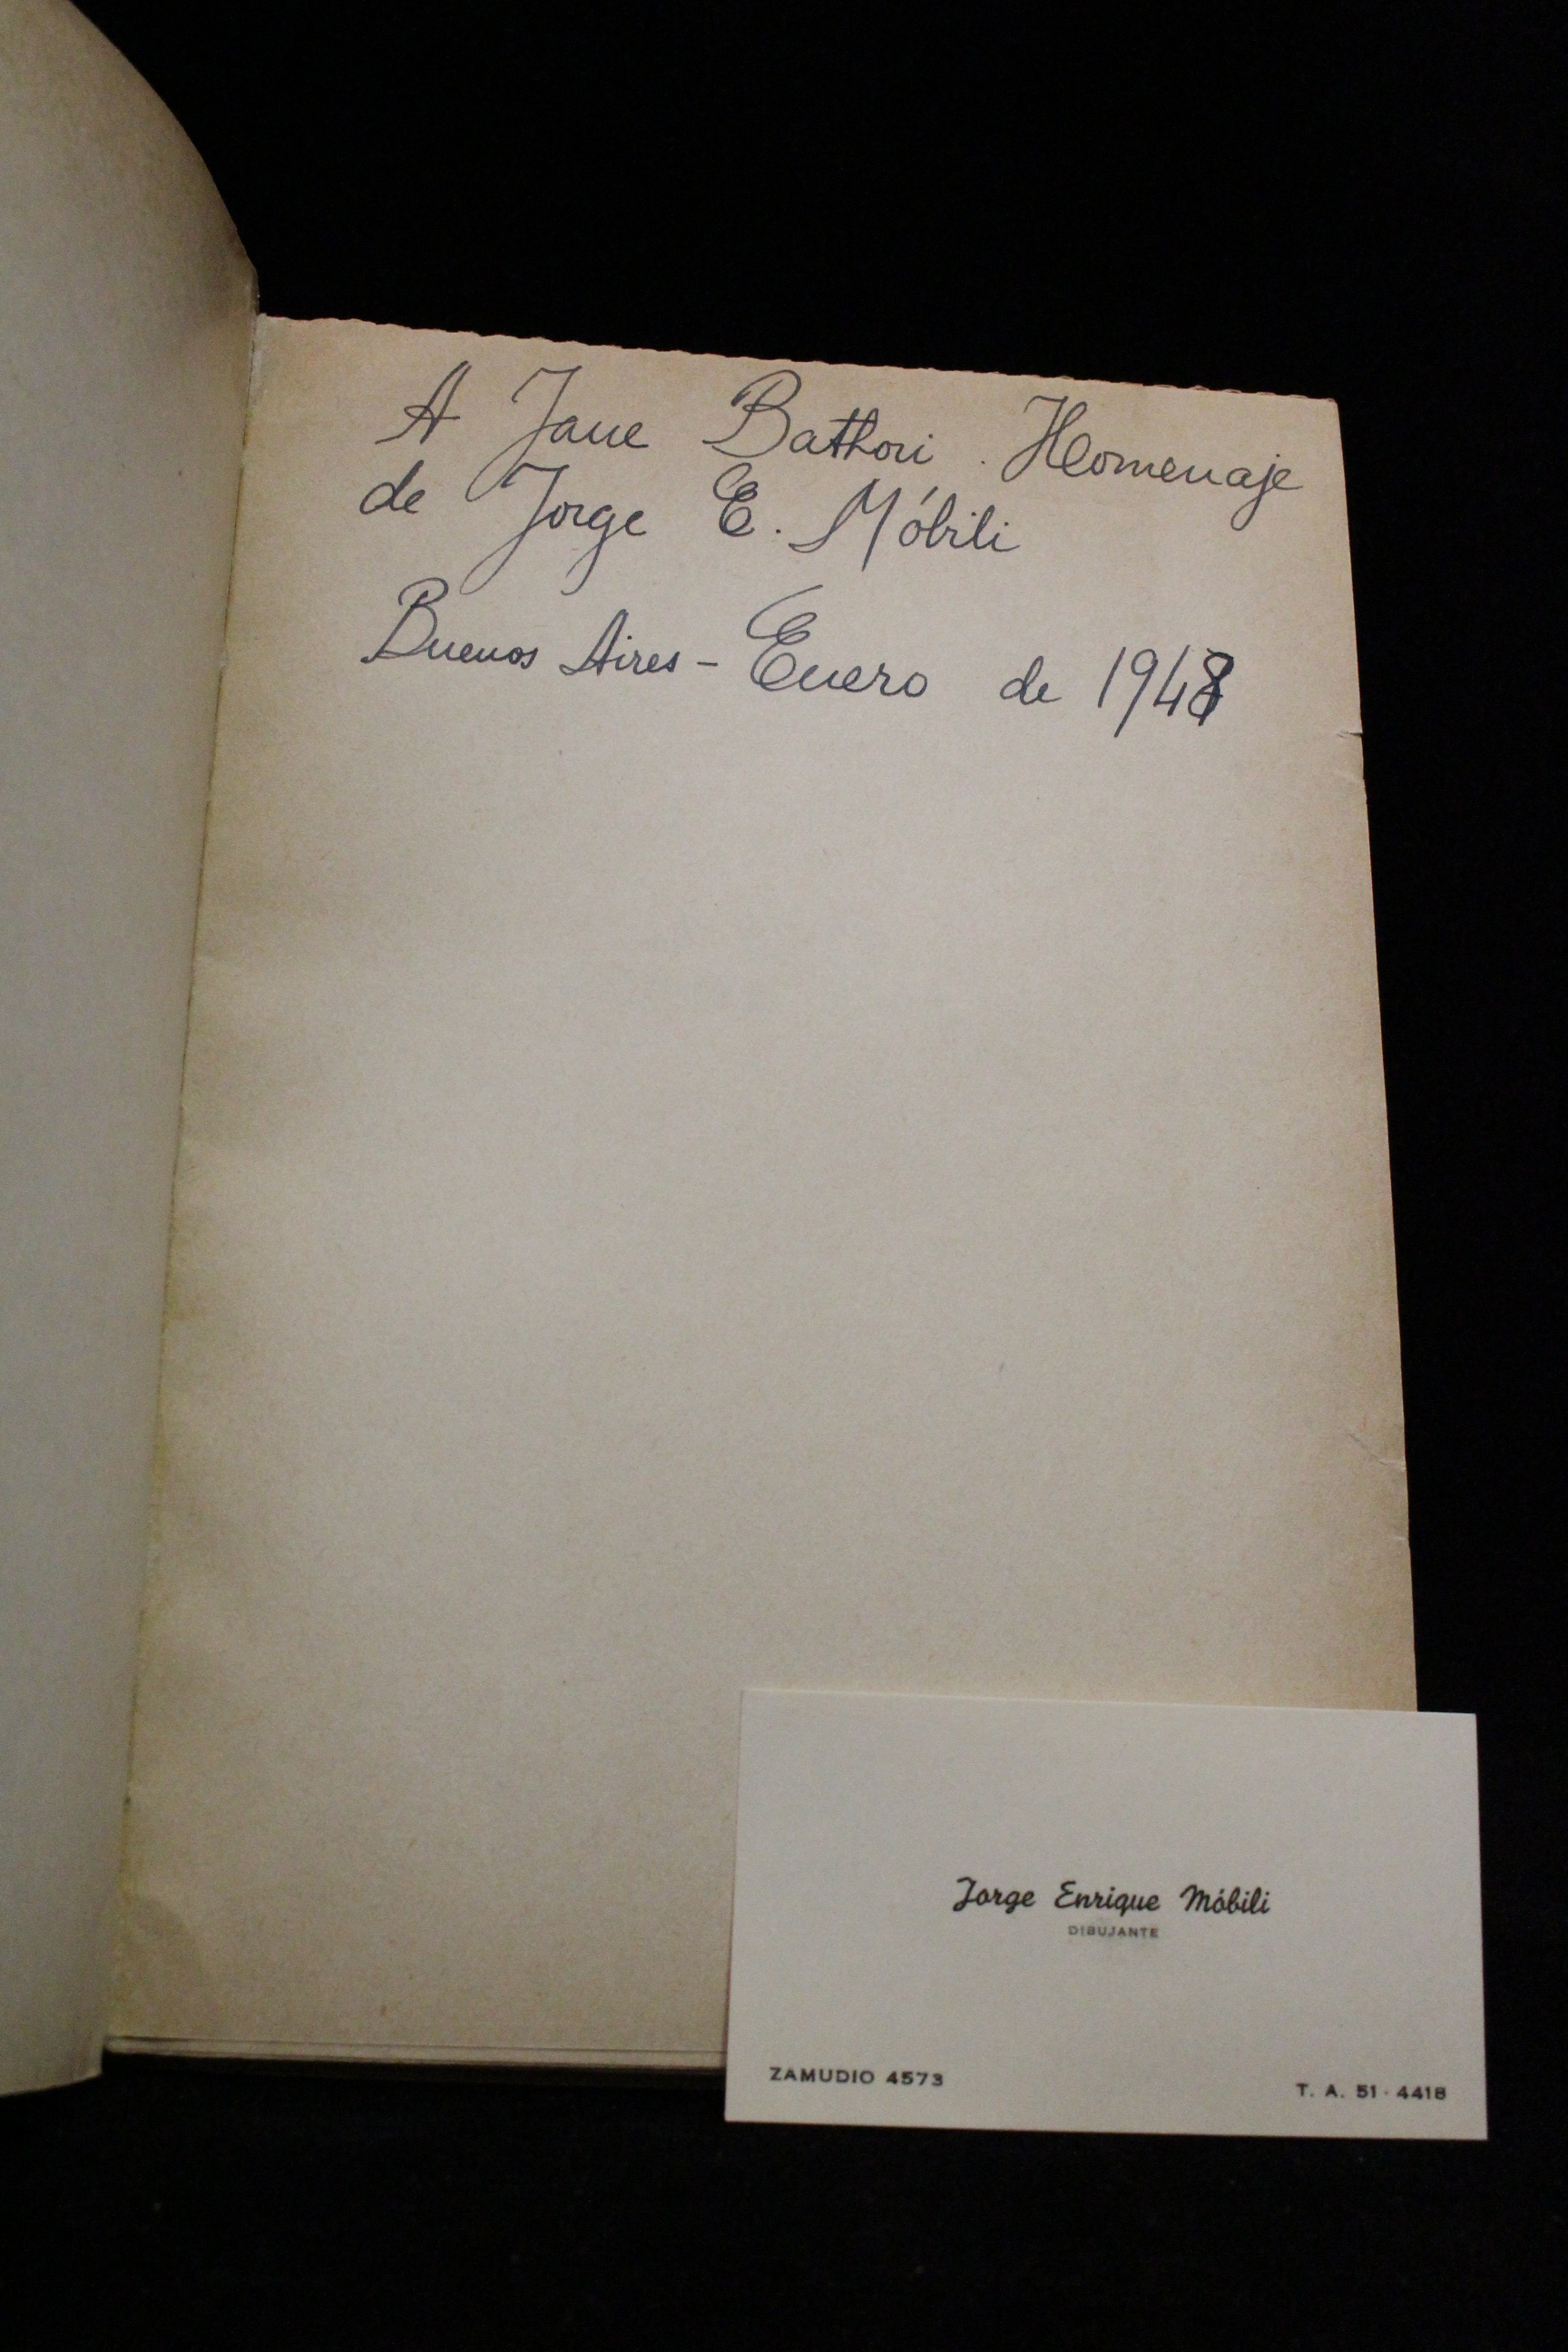 A Jane Bathori. Homenaje
de Jorge E. Móbili
Buenos Aires - Enero de 1948
Jorge Enrique Móbili
DIBUJANTE
ZAMUDIO 4573
T. A. 51-4418